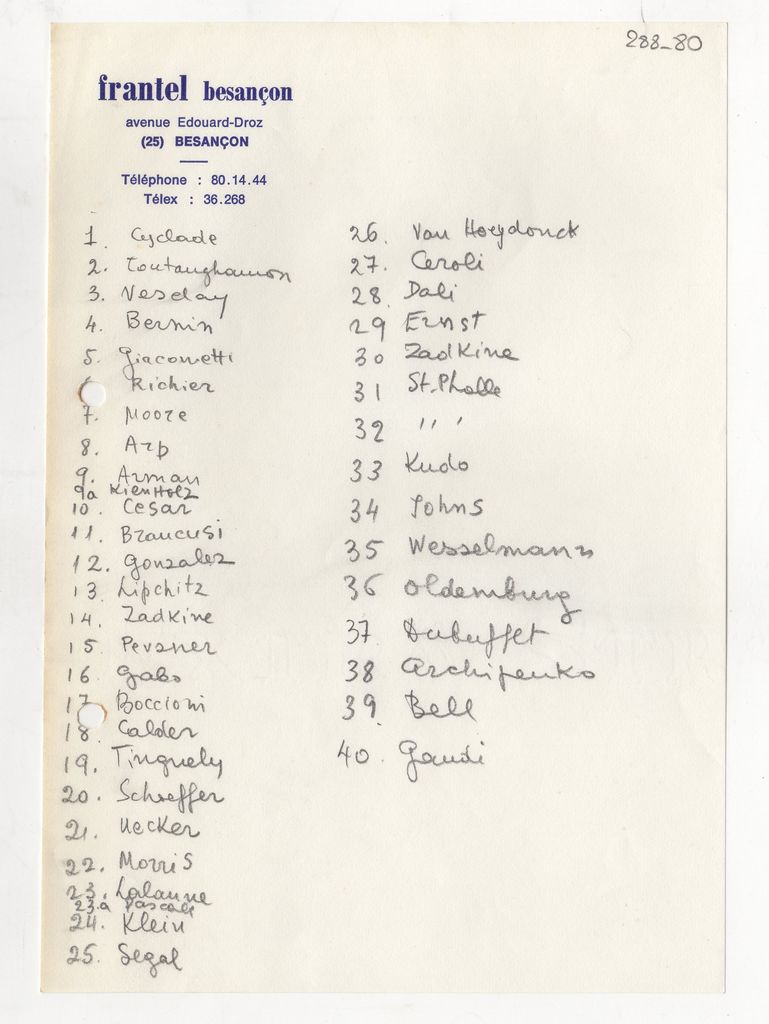 288-80
frantel besançon
avenue Edouard-Droz
(25) BESANÇON
Téléphone : 80.14.44
Télex : 36.268
1. Cyclade
2. Toutanghamon
3. Nesday
4. Bernin
5. Giacometti
6 Richier
7. Moore
8. Arp
9. Arman
9a Kienholz
10. Cesar
11. Brancusi
12. Gonzalez
13. Lipchitz
14. Zadkine
15 Pevsner
16 Gabo
17 Boccioni
18. Calder
19. Tinguely
20. Schoeffer
21. Uecker
22. Morris
23. Lalanne
23.a Pascali
24. Klein
25. Segal
26. Van Hoeydonck
27. Ceroli
28. Dali
29 Ernst
30 Zadkine
31 St. Phalle
32 " '
33 Kudo
34 Johns
35 Wesselmann
36 Oldemburg
37 Dubuffet
38 Archipenko
39. Bell
40. Gaudi